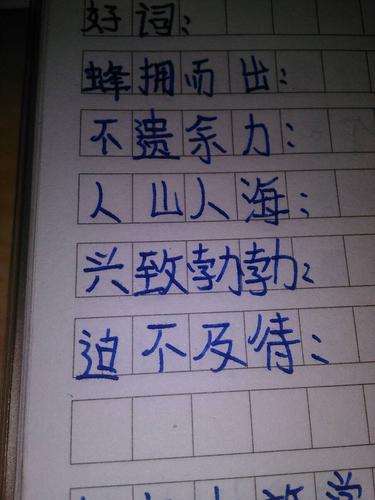 好词:
蜂拥而出:
不遗余力:
人山人海:
兴致勃勃:
迫不及待: